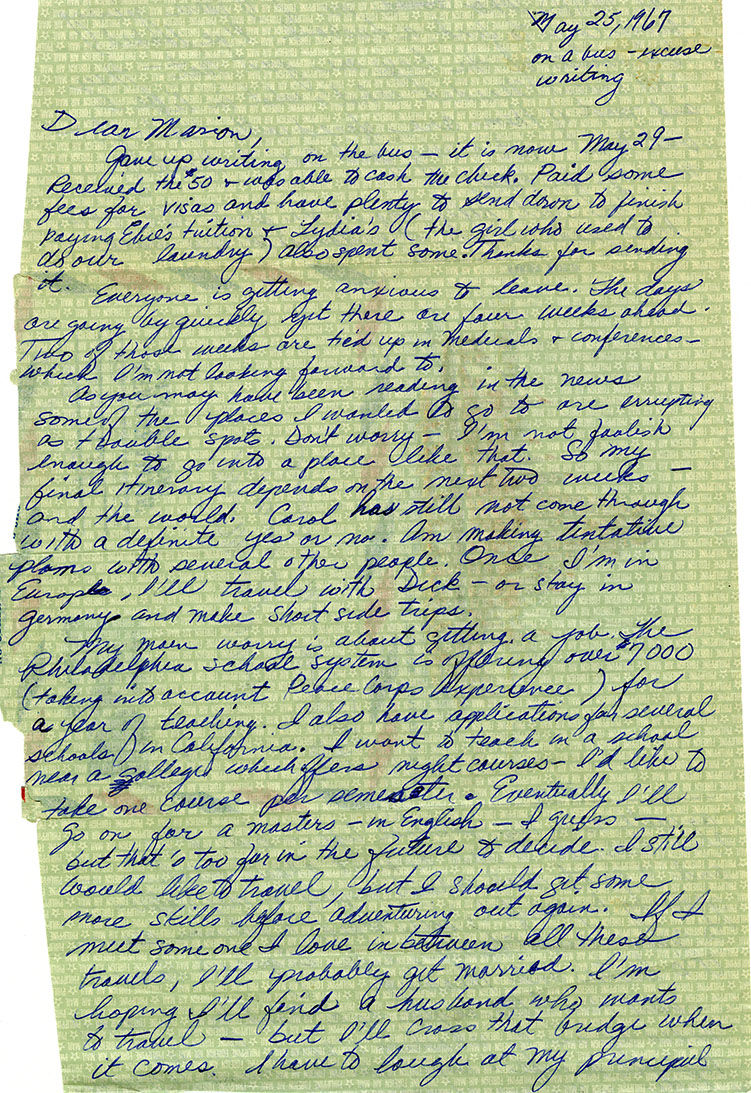 May 25, 1967
on a bus – excuse
writing
Dear Marion,
Gave up writing on the bus – it is now May 29 –
Received the $50 + was able to cash the check. Paid some
fees for visas and have plenty to send down to finish
paying Ebie's tuition + Lydia's (the girl who used to
do our laundry) also spent some. Thanks for sending
it.
Everyone is getting anxious to leave. The days
are going by quickly yet there are four weeks ahead.
Two of those weeks are tied up in Medicals + conferences –
which I'm not looking forward to.
As you may have been reading in the news
some of the places I wanted to go to are errupting
as trouble spots. Don't worry – I'm not foolish
enough to go into a place like that. So my
final itinerary depends on the next two weeks –
and the world. Carol has still not come through
with a definite yes or no. Am making tentative
plans with several other people. Once I'm in
Europe, I'll travel with Dick – or stay in
Germany and make short side trips.
My main worry is about getting a job. The
Philadelphia school system is offering over $7000
(taking into account Peace Corps experience) for
a year of teaching. I also have applications for several
schools in California. I want to teach in a school
near a college which offers night courses – I'd like to
take one course per semester. Eventually I'll
go on for a masters – in English – I guess –
but that's too far in the future to decide. I still
would like to travel, but I should get some
more skills before adventuring out again. If I
meet someone I love in between all these
travels, I'll probably get married. I'm
hoping I'll find a husband who wants
to travel – but I'll cross that bridge when
it comes. I have to laugh at my principal